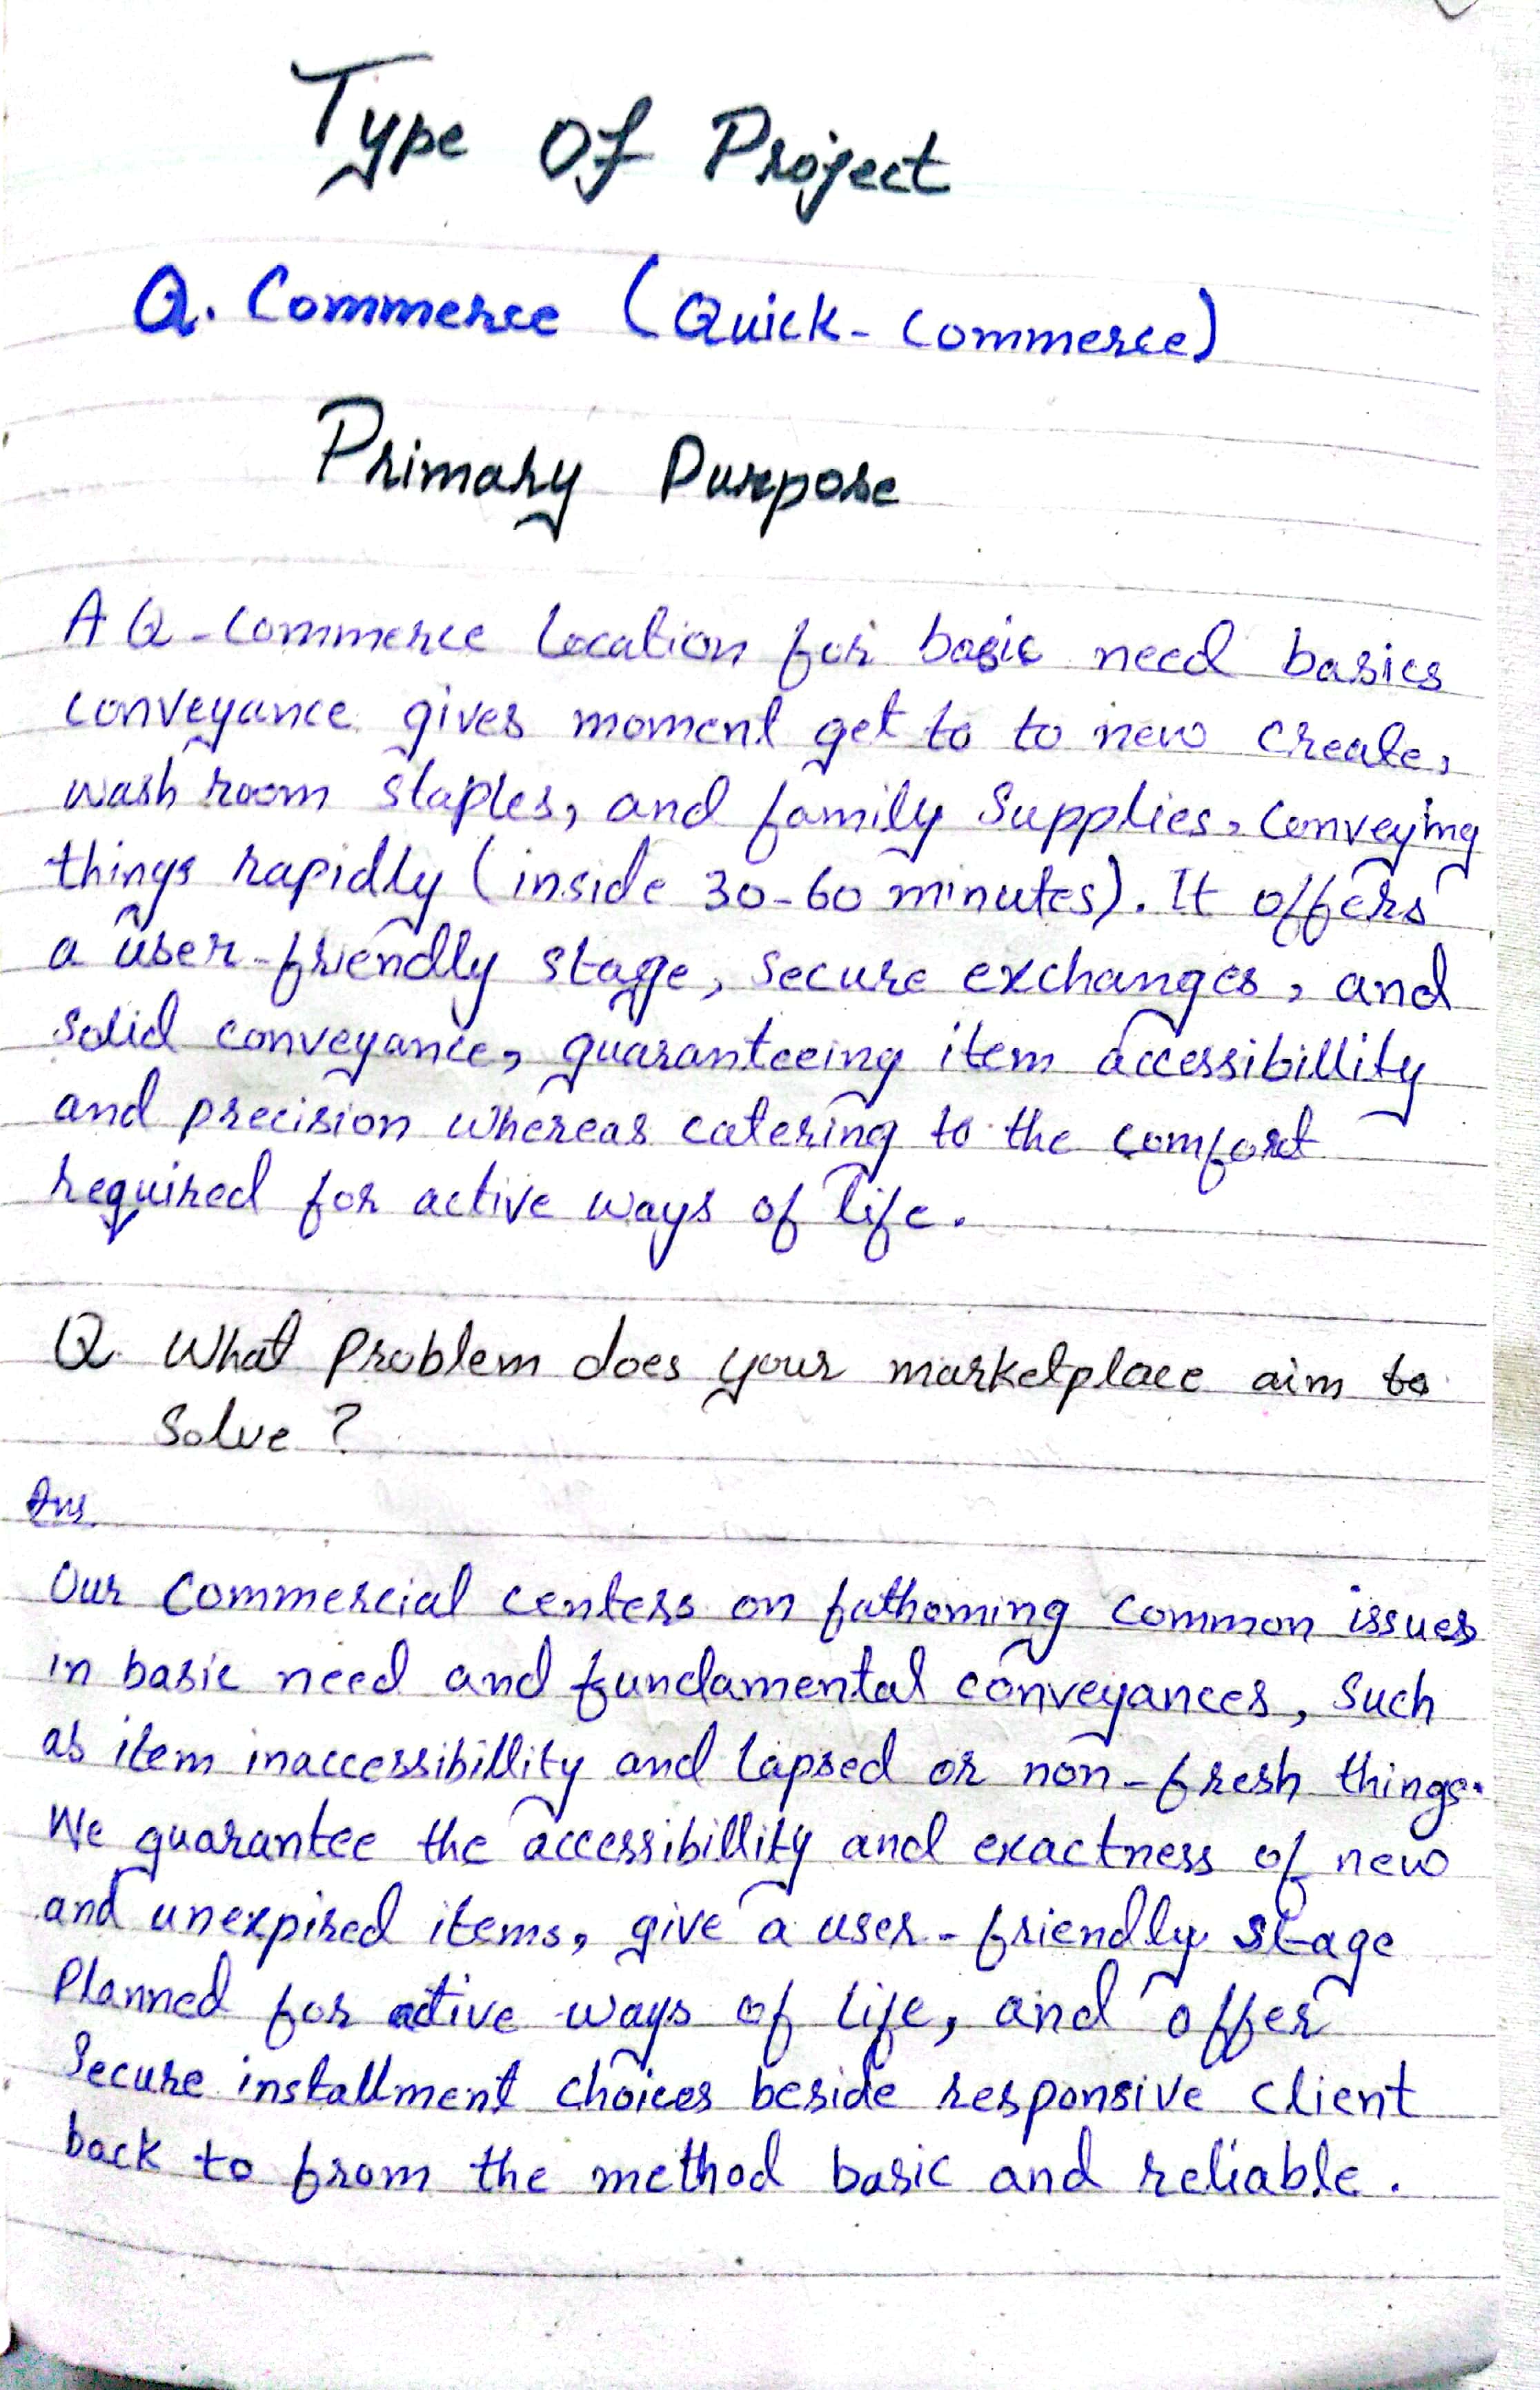 Type Of Project
Q. Commerce (Quick-Commerce)
Primary Purpose
A Q-Commerce Location for basic need basics
conveyance gives moment get to to new create,
wash room staples, and family Supplies, Conveying
things rapidly (inside 30-60 minutes). It offers
a user-friendly stage, Secure exchanges, and
Solid conveyance, guaranteeing item accessibillity
and precision whereas catering to the comfort
required for active ways of life.
Q. What Problem does your marketplace aim to
Solve ?
Ans.
Our Commercial centers on fathoming common issues
in basic need and fundamental conveyances, Such
as item inaccessibillity and lapsed or non-fresh things.
We guarantee the accessibillity and exactness of new
and unexpired items, give a user-friendly stage
Planned for active ways of life, and offer
Secure installment choices beside responsive client
back to from the method basic and reliable.